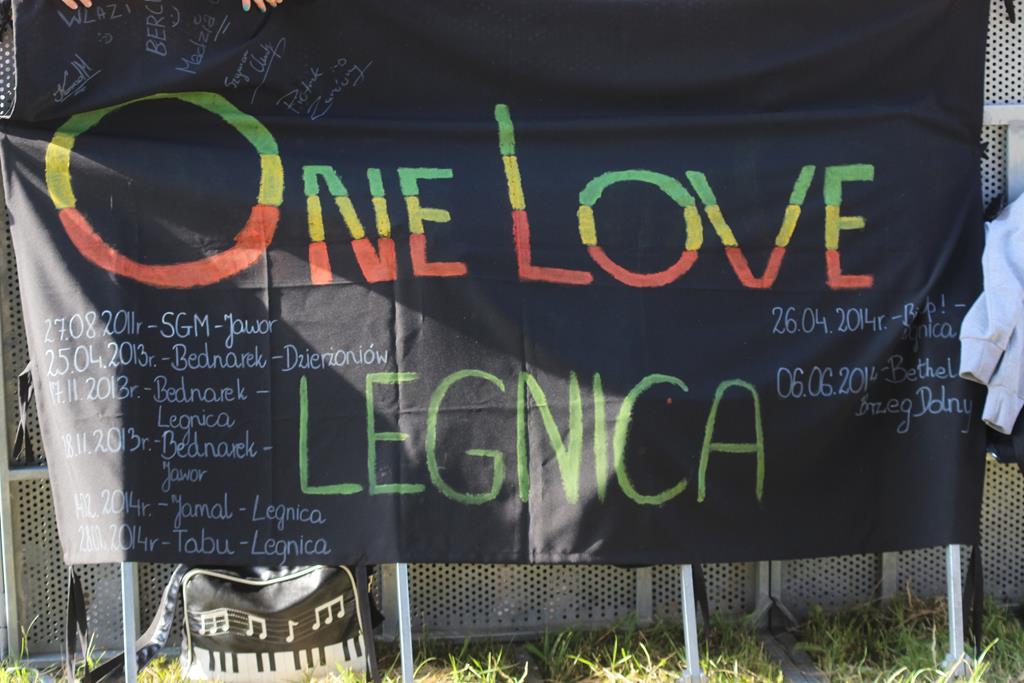 WLAZI
BERCU
Madzia
ONE LOVE
27.08.2011r - SGM - Jawor
25.04.2013r. - Bednarek - Dzierżoniów
17.11.2013r. - Bednarek -
Legnica
18.11.2013r. - Bednarek -
Jawor
2014r. - Jamal - Legnica
2014r - Tabu - Legnica
LEGNICA
26.04.2014r. -
06.06.2014 - Bethel
Brzeg Dolny